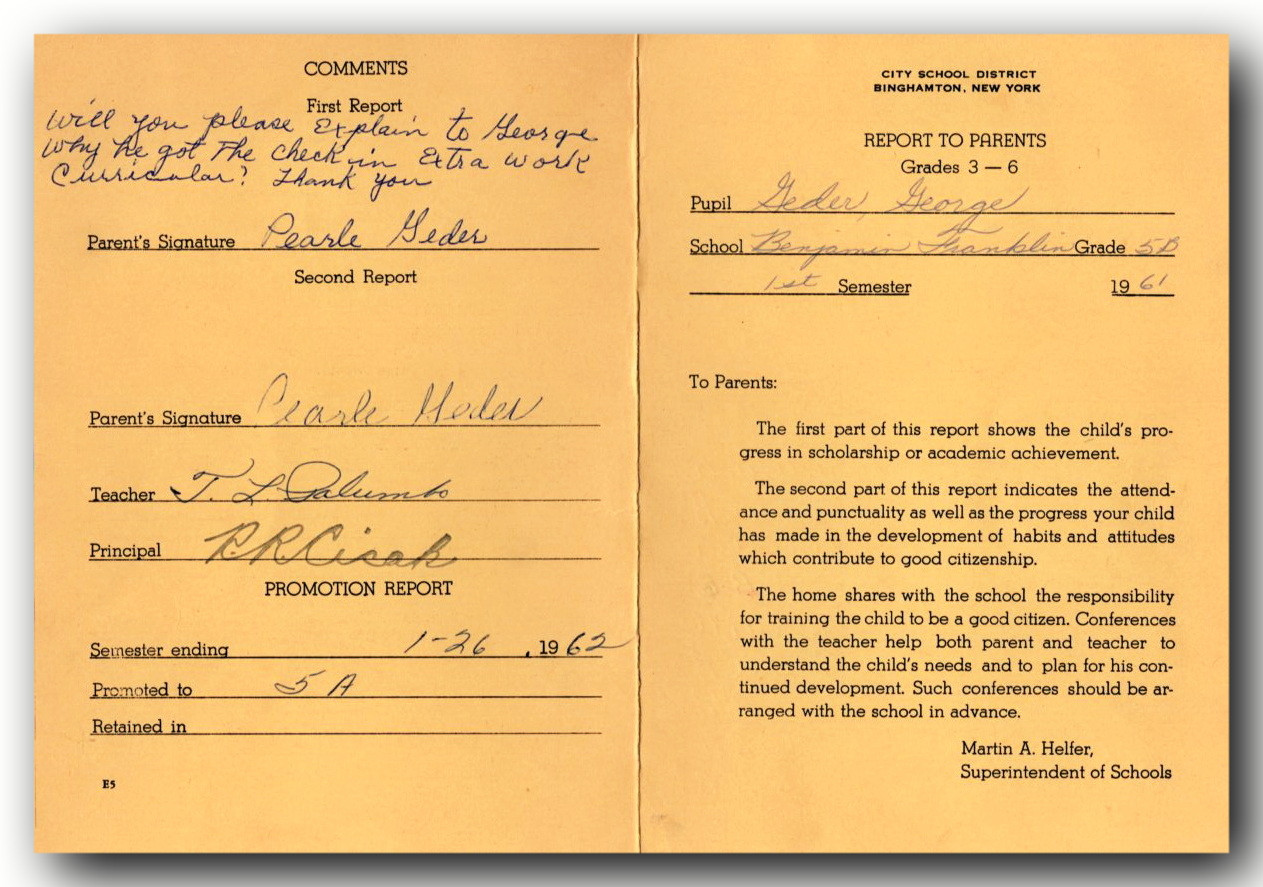 COMMENTS
First Report
Will you please Explain to George
Why he got The check in Extra work
Curricular? Thank you
Parent's Signature Pearle Geder
Second Report
Parent's Signature Pearle Geder
Teacher T. L. Palumbo
Principal R.R. Cisak
PROMOTION REPORT
Semester ending 1-26, 1962
Promoted to 5A
Retained in
E5
CITY SCHOOL DISTRICT
BINGHAMTON, NEW YORK
REPORT TO PARENTS
Grades 3 — 6
Pupil Geder, George
School Benjamin Franklin Grade 5B
1st Semester 1961
To Parents:
The first part of this report shows the child's pro-
gress in scholarship or academic achievement.
The second part of this report indicates the attend-
ance and punctuality as well as the progress your child
has made in the development of habits and attitudes
which contribute to good citizenship.
The home shares with the school the responsibility
for training the child to be a good citizen. Conferences
with the teacher help both parent and teacher to
understand the child's needs and to plan for his con-
tinued development. Such conferences should be ar-
ranged with the school in advance.
Martin A. Helfer,
Superintendent of Schools